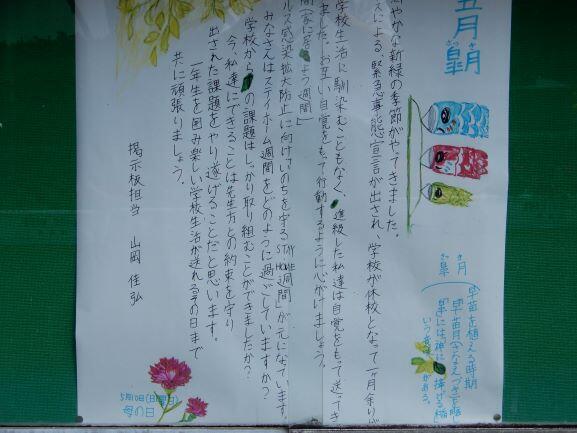 五月
皐月
さつき
爽やかな新緑の季節がやってきました。
スによる緊急事態宣言が出され、学校が休校となって一ヶ月余りが
学校生活に馴染むこともなく、進級した私達は自覚をもって送ってき
ました。お互い自覚をもって行動するように心がけましょう。
ルス感染拡大防止に向けて いのちを守るSTAY HOME週間」が元になています。
みなさんはステイホーム週間をどのように過ごしていますか?
学校からの課題はしっかり取り組むことができましたか?
今、私達にできることは先生方との約束を守り
出された課題をやり遂げることだと思います。
一年生を囲み楽しい学校生活が送れるその日まで
共に頑張りましょう。
掲示板担当 山岡 佳弘
皐月
さ つき
早苗を植える時期
『早苗月(さなえづき)』を略し
『皐』には、神に捧げる稲
いう
がある。
5月10日(日曜日)
母の日